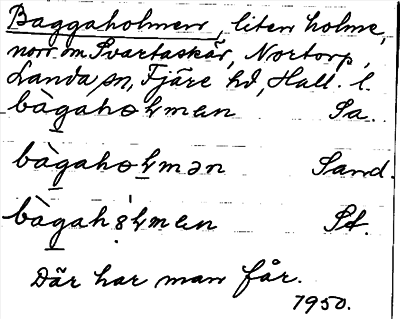 Baggaholmen, liten holme,
norr om Svartaskär, Nortorp,
Landa sn, Fjäre hd, Hall. l.
bàgahɵɫmən Sa.
bàgahɵɫmən Sand.
bàgahɵɫmən St.
Där har man får.
1950.